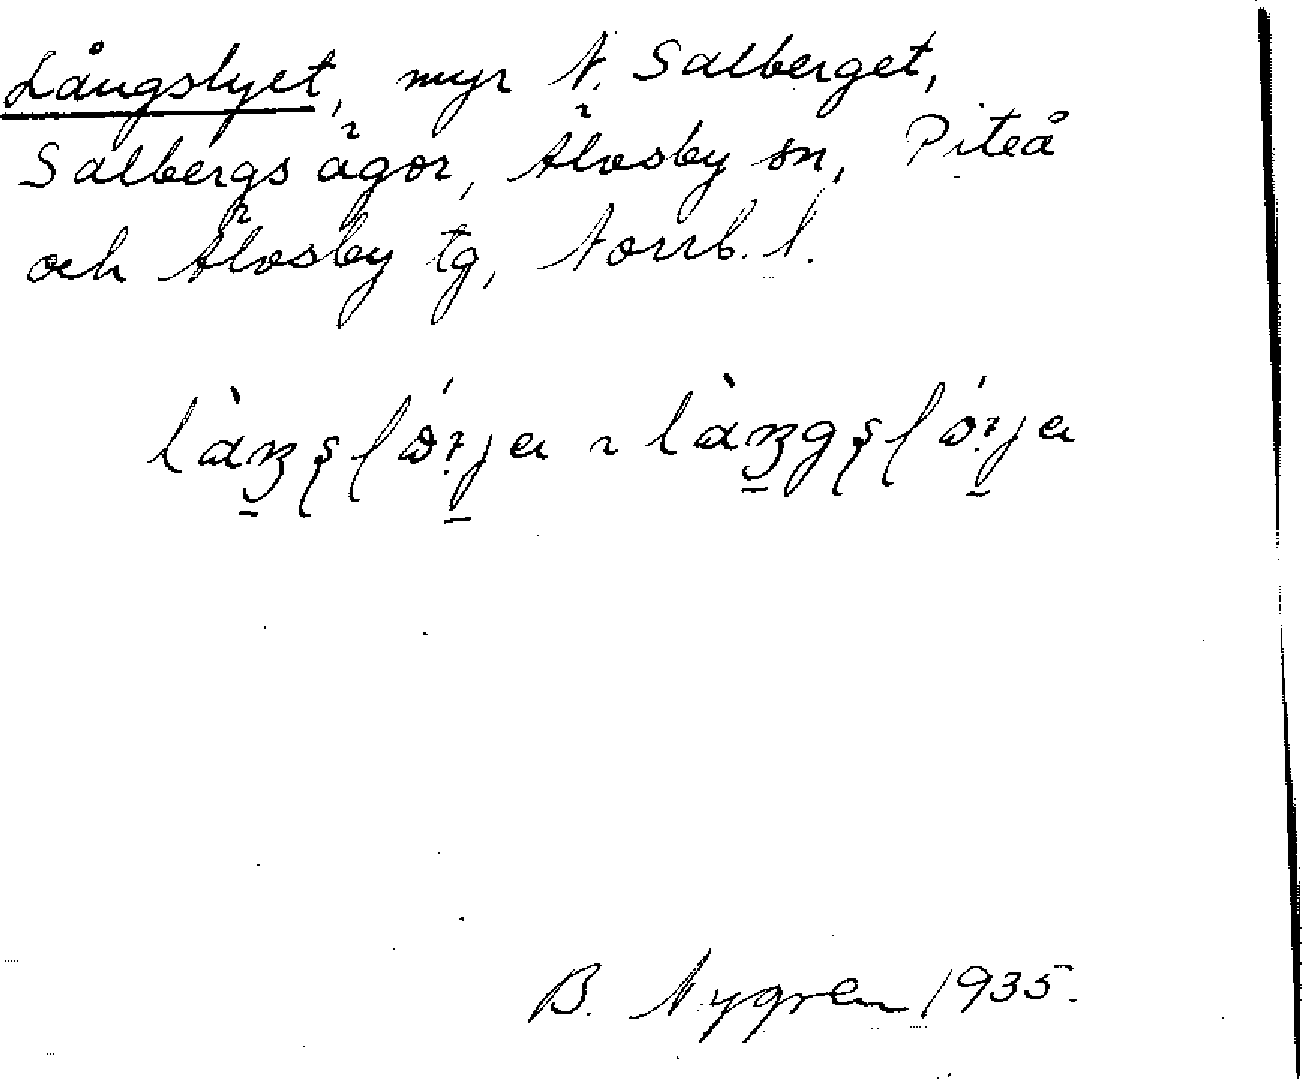 Långslyet, myr N. Salberget,
Salbergs ägor, Älvsby sn, Piteå
och Älvsby tg, Norrb. l.
B. Nygren 1935.